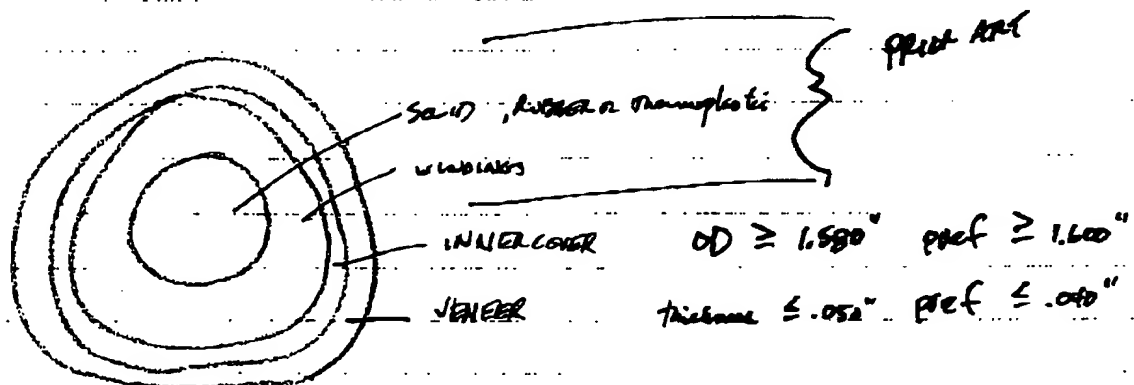 PRIOR ART
SOLID, RUBBER or thermoplastic
WINDINGS
INNERCOVER OD ≥ 1.580" pref ≥ 1.600"
VENEER thickness ≤ .052" pref ≤ .040"